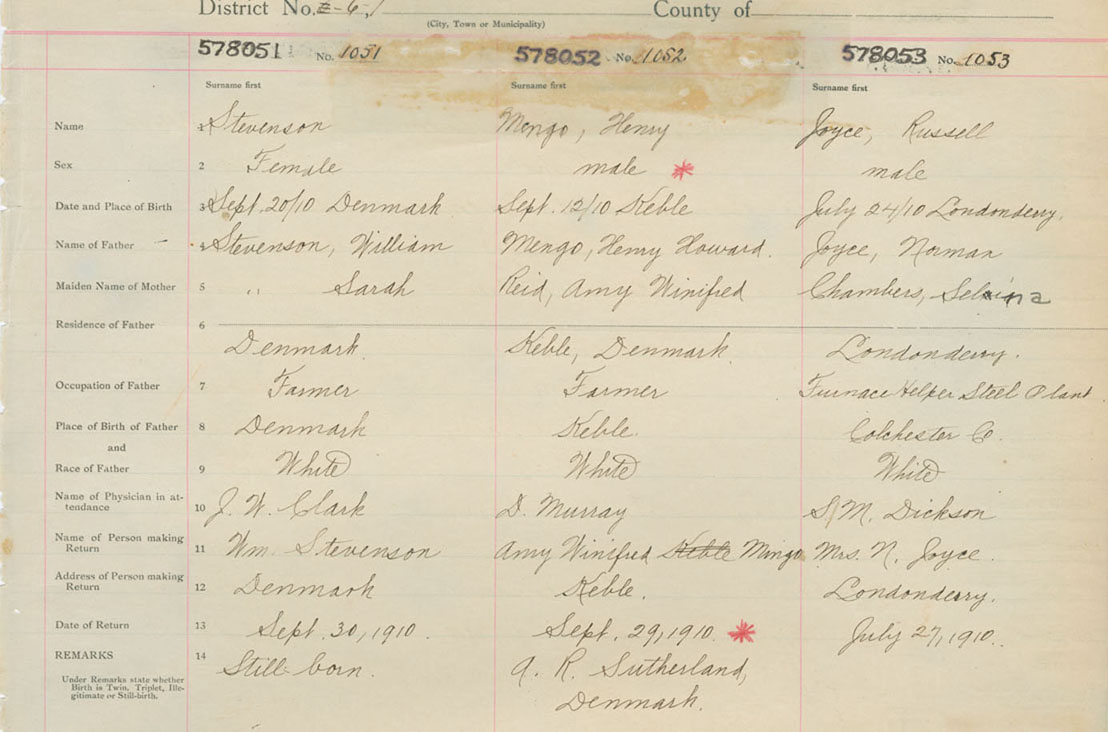 District No. E-6, County of
(City, Town or Municipality)
578051 No. 1051 578052 No. 1052 578053 No. 1053
Surname first Surname first Surname first
Name 1 Stevenson Mengo, Henry Joyce, Russell
Sex 2 Female male male
Date and Place of Birth 3 Sept. 20/10 Denmark Sept. 12/10 Keble July 24/10 Londonderry.
Name of Father 4 Stevenson, William Mengo, Henry Howard. Joyce, Norman
Maiden Name of Mother 5 " Sarah Reid, Amy Winifred Chambers,
Residence of Father 6
Denmark. Keble, Denmark. Londonderry.
Occupation of Father 7 Farmer Farmer Furnace Helper Steel Plant
Place of Birth of Father 8 Denmark Keble. Colchester Co.
and
Race of Father 9 White White White
Name of Physician in at-
tendance 10 J. W. Clark D. Murray S. M. Dickson
Name of Person making
Return 11 Wm. Stevenson Amy Winifred Keble Mingo Mrs. N. Joyce.
Address of Person making
Return 12 Denmark Keble. Londonderry.
Date of Return 13 Sept. 30, 1910. Sept. 29, 1910. July 27, 1910.
REMARKS 14 Still-born. A. R. Sutherland,
Under Remarks state whether
Birth is Twin, Triplet, Ille-
gitimate or Still-birth.
Denmark.